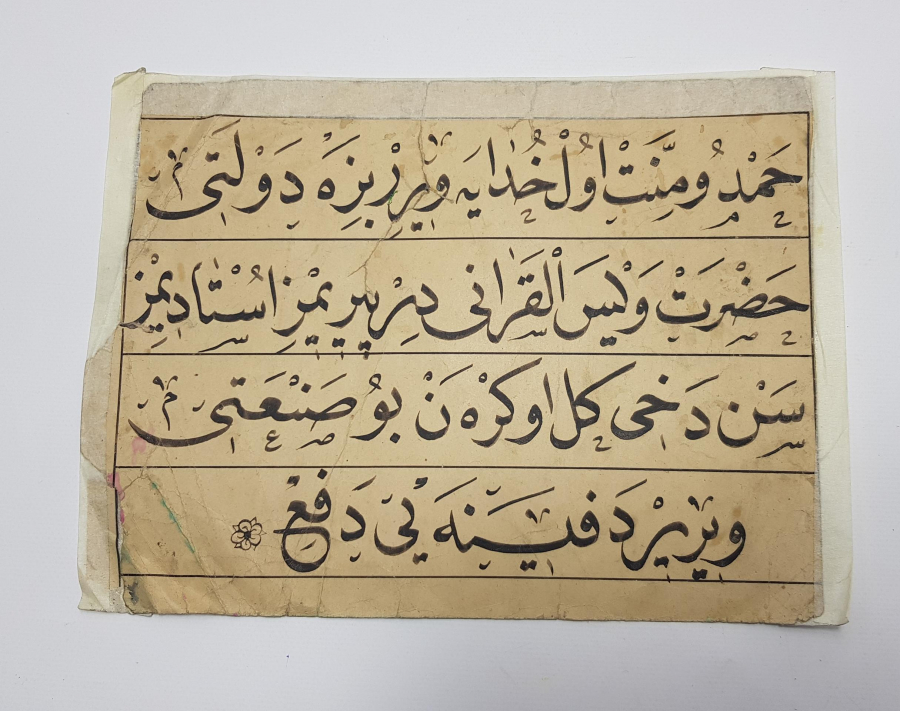 حَمْدِ و مِنَّتْ اوُلْ خُدايَه وِيرِرْ بِزَه دَوْلَتى
حَضْرَتْ وَيْسَ الْقَرَانى دِرْ پيريمْزِ اسُتْاديمْزِ
سَنْ دَخى كل اوكرْه نَ بوُ صَنْعَتى
وِيرِيرْ دَفينَه يى دَفعْ